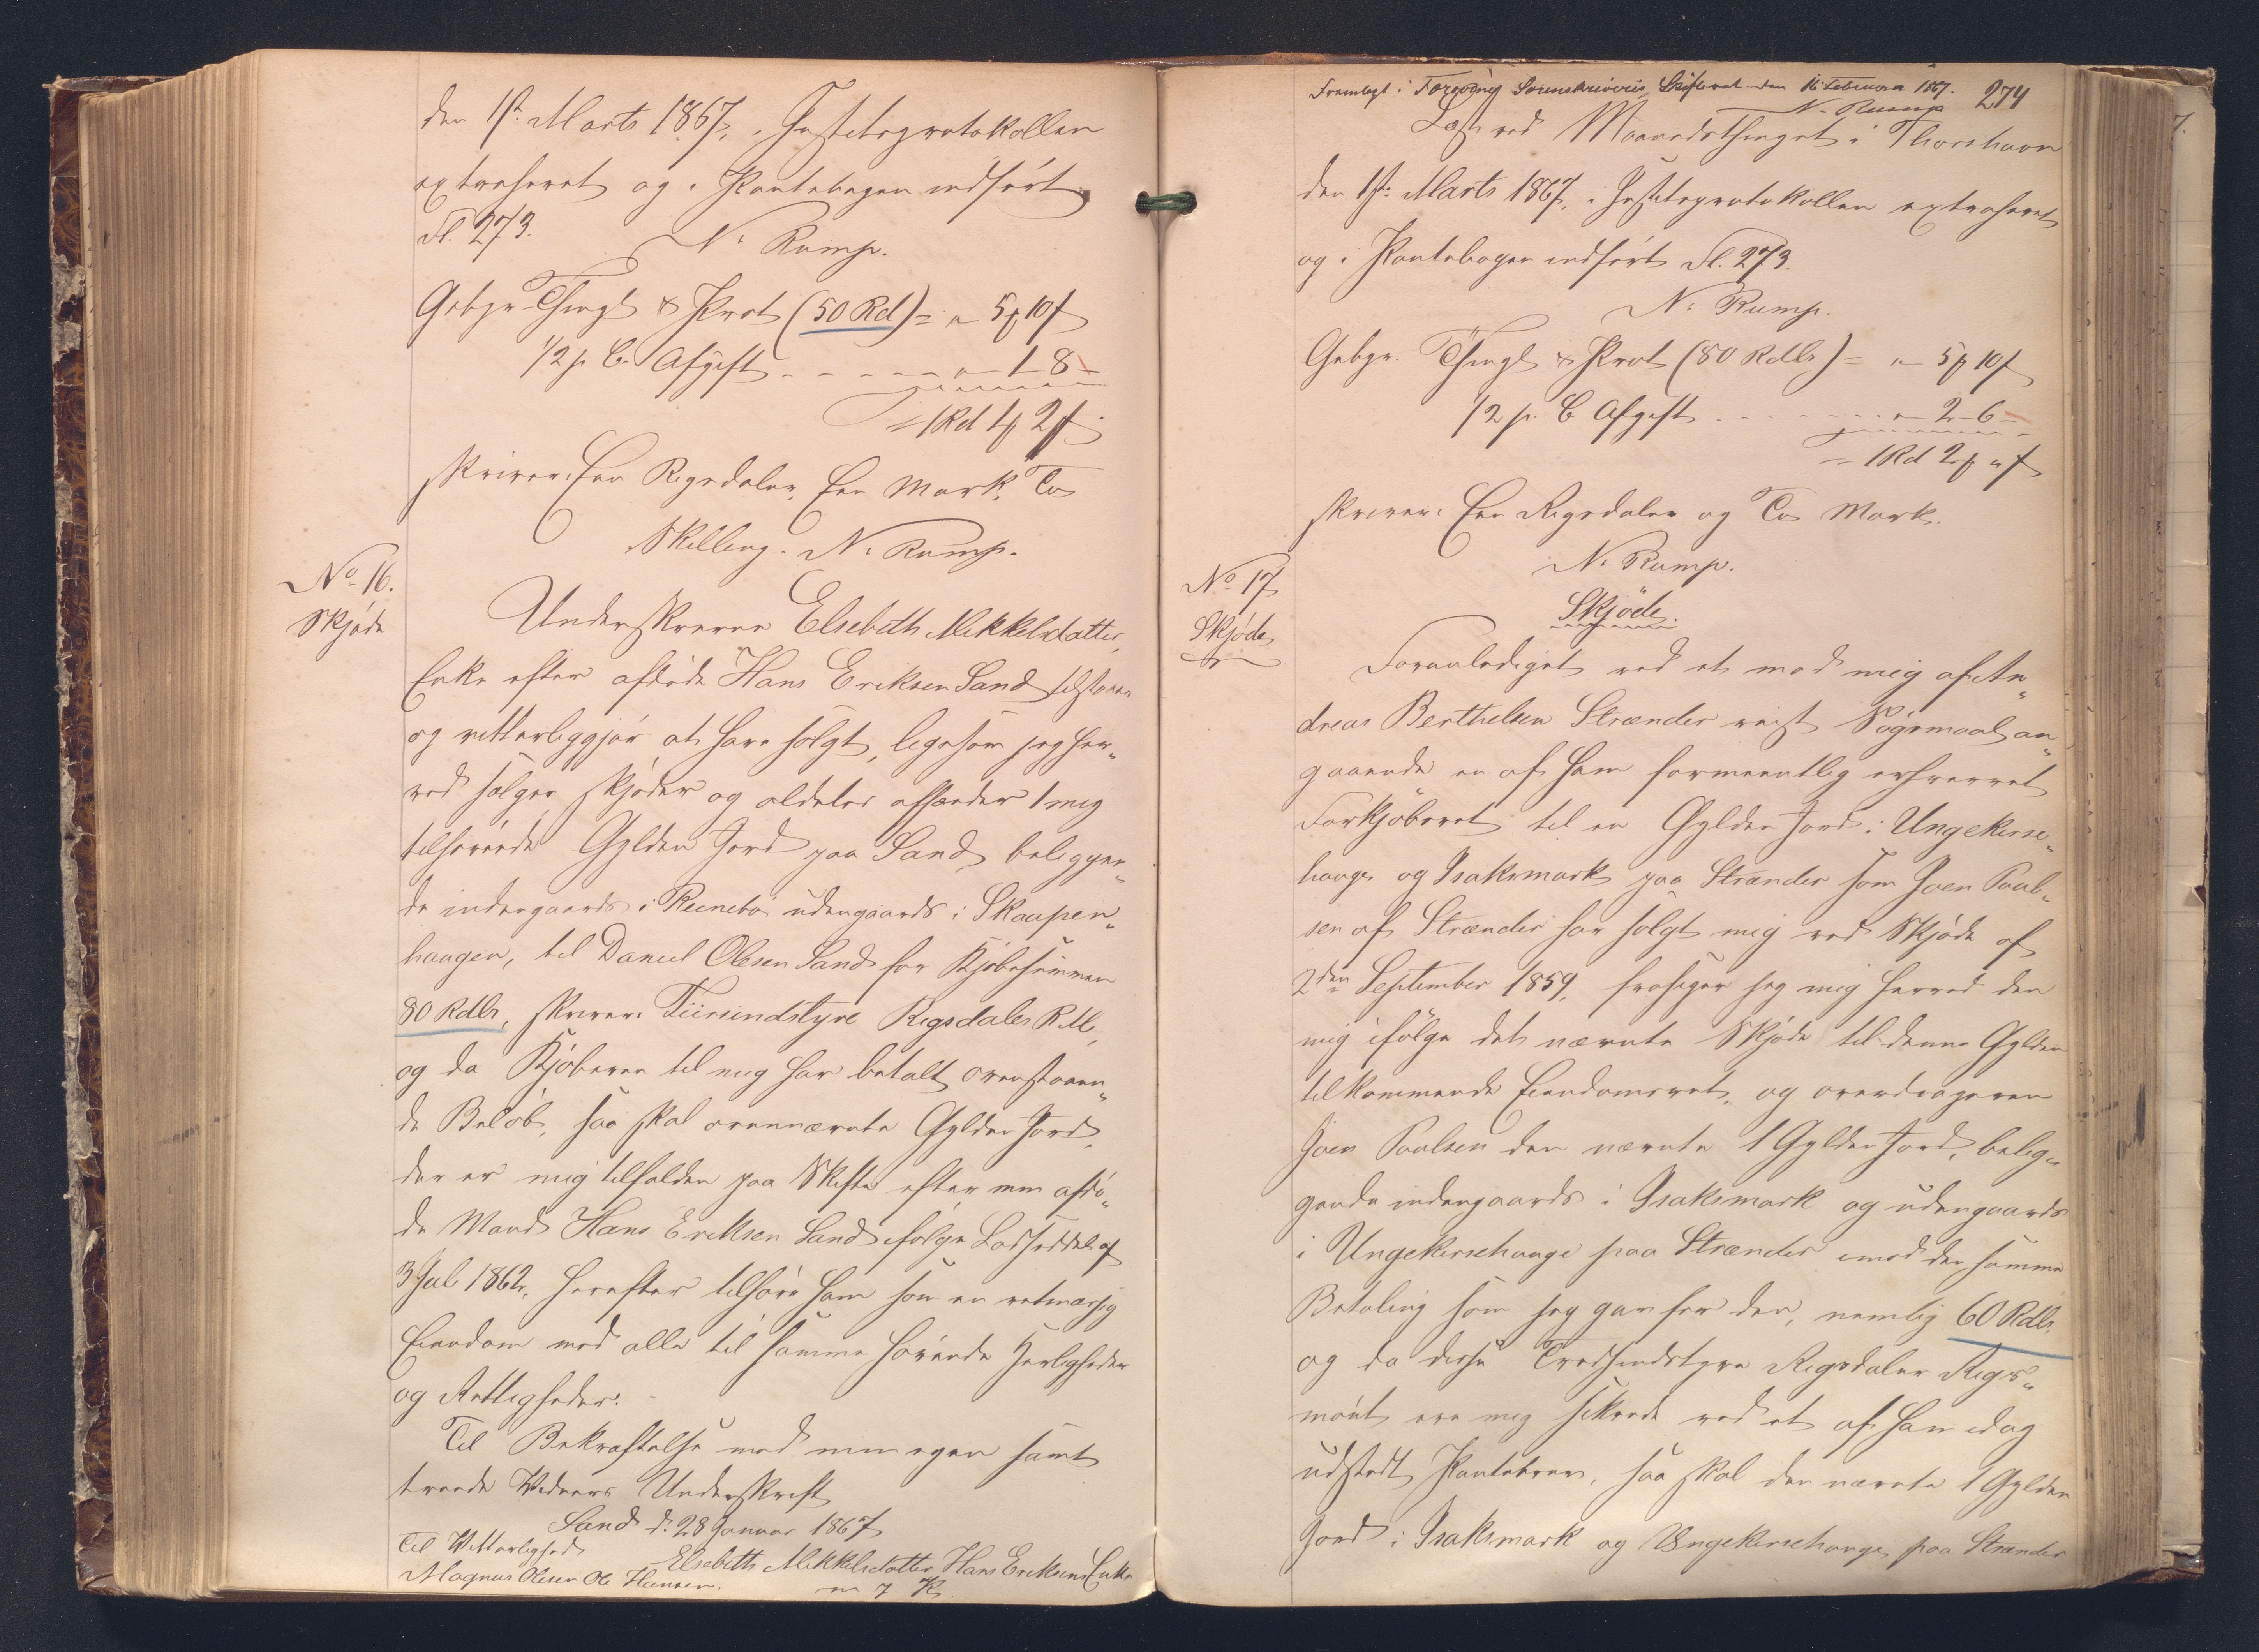 den 1ste Marts 1867, i Justitsprotokollen
extraheret og i Pantebogen indført
Fl. 273.
N. Rump.
Gebyr Thingl & Prot (50 Rd) = " 5 ₻ 10 ß
1/2 p. C. Afgift - - - - - " - 1 - 8 -
= 1 Rd 1 ₻ 2 ß
skriver Een Rigsdaler, Een Mark, To
Skilling. N. Rump.
No 16.
Skjøde
Underskrevne Elsebeth Mikkelsdatter,
Enke efter afdøde Hans Eriksen Sand tilstaaer
og vitterliggjør at have solgt, ligesom jeg her„
ved sælger, skjøder og aldeles afhænder 1 mig
tilhørende Gylden Jord paa Sand, beliggen„
de indengaards i Reinebø udengaards i Skaapen„
haugen, til Daniel Olesen Sand for Kjøbesummen
80 Rdlr, skriver Fiirsindstyve Rigsdaler R.M.,
og da Kjøberen til mig har betalt ovenstaaen„
de Beløb, saa skal ovennævnte Gylden Jord,
der er mig tilfalden paa Skifte efter min afdø„
de Mand Hans Eriksen Sand ifølge Lodseddel af
3 Juli 1862, herefter tilhøre ham som en retmæssig
Eiendom med alle til samme hørende Herligheder
og Rettigheder.
Til Bekræftelse med min egen samt
tvende Vidners Underskrift
Sand d. 28 Januar 1867
Til Vitterlighed
Elsebeth Mikkelsdatter, Hans Eriksens Enke
Magnus Olesen Ole Hansen.
m f P.
Fremlagt i Færøernes Sorenskriveries Skifteret den 16 Februar 1867. 274
N. Rump
Læst ved Maanedsthinget i Thorshavn
den 1ste Marts 1867, i Justitsprotokollen extraheret
og i Pantebogen indført Fl. 273.
N. Rump.
Gebyr. Thingl & Prot (80 Rdlr) = " 5 ₻ 10 ß
1/2 p. C Afgift - - - - - " - 2 - 6 -
= 1 Rd 2 ₻ " ß
skriver Een Rigsdaler og To Mark.
N. Rump.
No 17
Skjøde
Skjøde.
Foranlediget ved et mod mig af An„
dreas Berthelsen Strænder reist Søgsmaal an„
gaaende en af ham formeentlig erhvervet
Forkjøbsret til en Gylden Jord i Ungekirse„
hauge og Isaksmark paa Strænder som Joen Poul„
sen af Strænder har solgt mig ved Skjøde af
2den September 1859, frasiger jeg mig herved den
mig ifølge det nævnte Skjøde til denne Gylden
tilkommende Eiendomsret, og overdrager en
Joen Poulsen den nævnte 1 Gylden Jord, belig„
gende indengaards i Isaksmark og udengaards
i Ungekirsehauge paa Strænder imod den samme
Betaling som jeg gav for den, nemlig 60 Rdlr.
og da disse Tredsindstyve Rigsdaler Rigs„
mønt ere mig sikrede ved et af ham idag
udstedt Pantebrev, saa skal den nævnte 1 Gylden
Jord i Isaksmark og Ungekirsehauge, paa Strænder